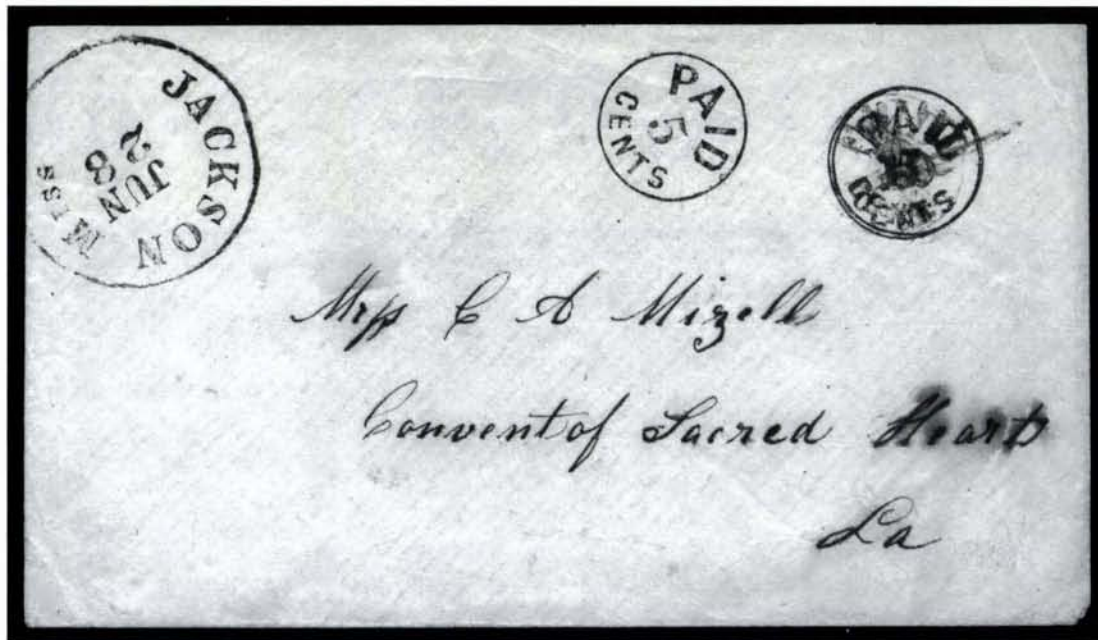 JACKSON Miss
JUN
28
PAID
5
CENTS
PAID
CENTS
C A Mizell
Convent of Sacred Hearts
La